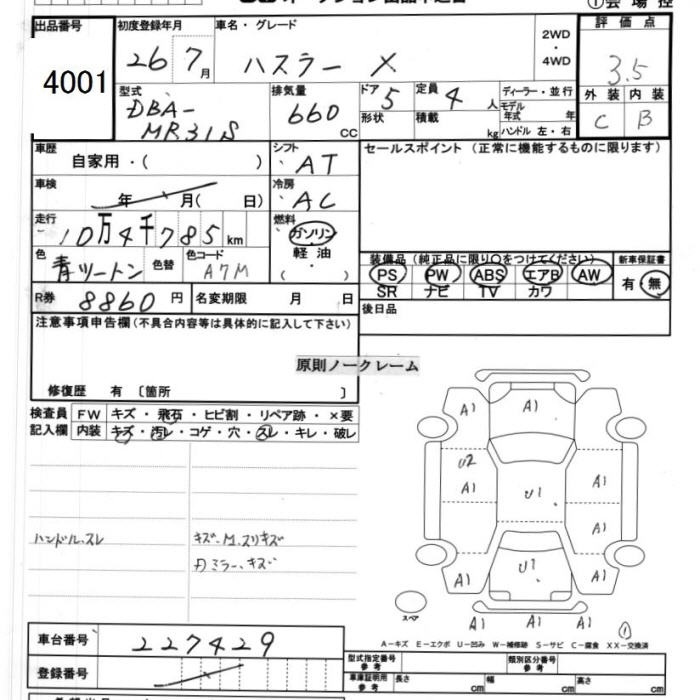 ①会場控
出品番号
4001
初度登録年月
26 7月
車名・グレード
ハスラー X
2WD
・
4WD
評価点
3.5
外装 内装
C B
型式
DBA-
MR31S
排気量
660 cc
ドア 5
形状
定員 4 人
積載 kg
ディーラー・並行
モデル年式 年
ハンドル 左・右
車歴
自家用・( )
シフト
AT
セールスポイント(正常に機能するものに限ります)
車検
年 月( 日)
冷房
AC
走行
10万4千785km
燃料
ガソリン
・
軽油
・
( )
色
青ツートン
色替
色コード
A7M
装備品(純正品に限り○をつけてください)
PS PW ABS エアB AW
SR ナビ TV カワ
新車保証書
有・無
R券 8860円
名変期限 月 日
後日品
注意事項申告欄(不具合内容等は具体的に記入して下さい)
原則ノークレーム
修復歴 有 〔箇所 〕
検査員記入欄
FW キズ・飛石・ヒビ割・リペア跡・×要
内装 キズ・汚レ・コゲ・穴・スレ・キレ・破レ
ハンドル、スレ
キズ、M、スリキズ
ミラー、キズ
A1 A1
U2
A1 U1 A1
A1
A1 U1 A1
A1 A1 A1
スペア
①
A-キズ E-エクボ U-凹み W-補修跡 S-サビ C-腐食 XX-交換済
車台番号 227429
登録番号
型式指定番号 参考
類別区分番号 参考
車庫証明用 参考
長さ cm 幅 cm 高さ cm